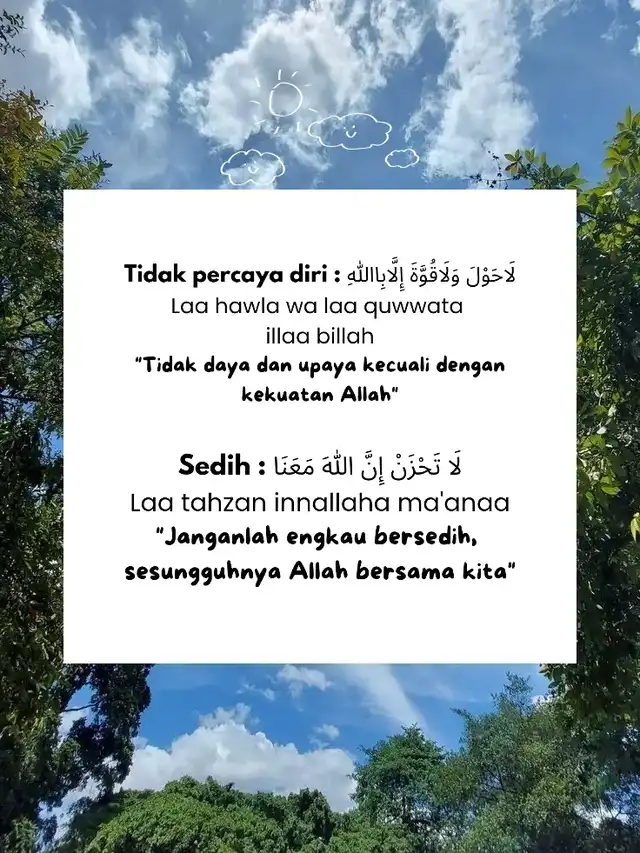 Tidak percaya diri : لَاحَوْلَ وَلَاقُوَّةَ إِلَّابِااللّٰهِ
Laa hawla wa laa quwwata
illaa billah
"Tidak daya dan upaya kecuali dengan
kekuatan Allah"
Sedih : لَا تَحْزَنْ إِنَّ اللّٰهَ مَعَنَا
Laa tahzan innallaha ma'anaa
"Janganlah engkau bersedih,
sesungguhnya Allah bersama kita"